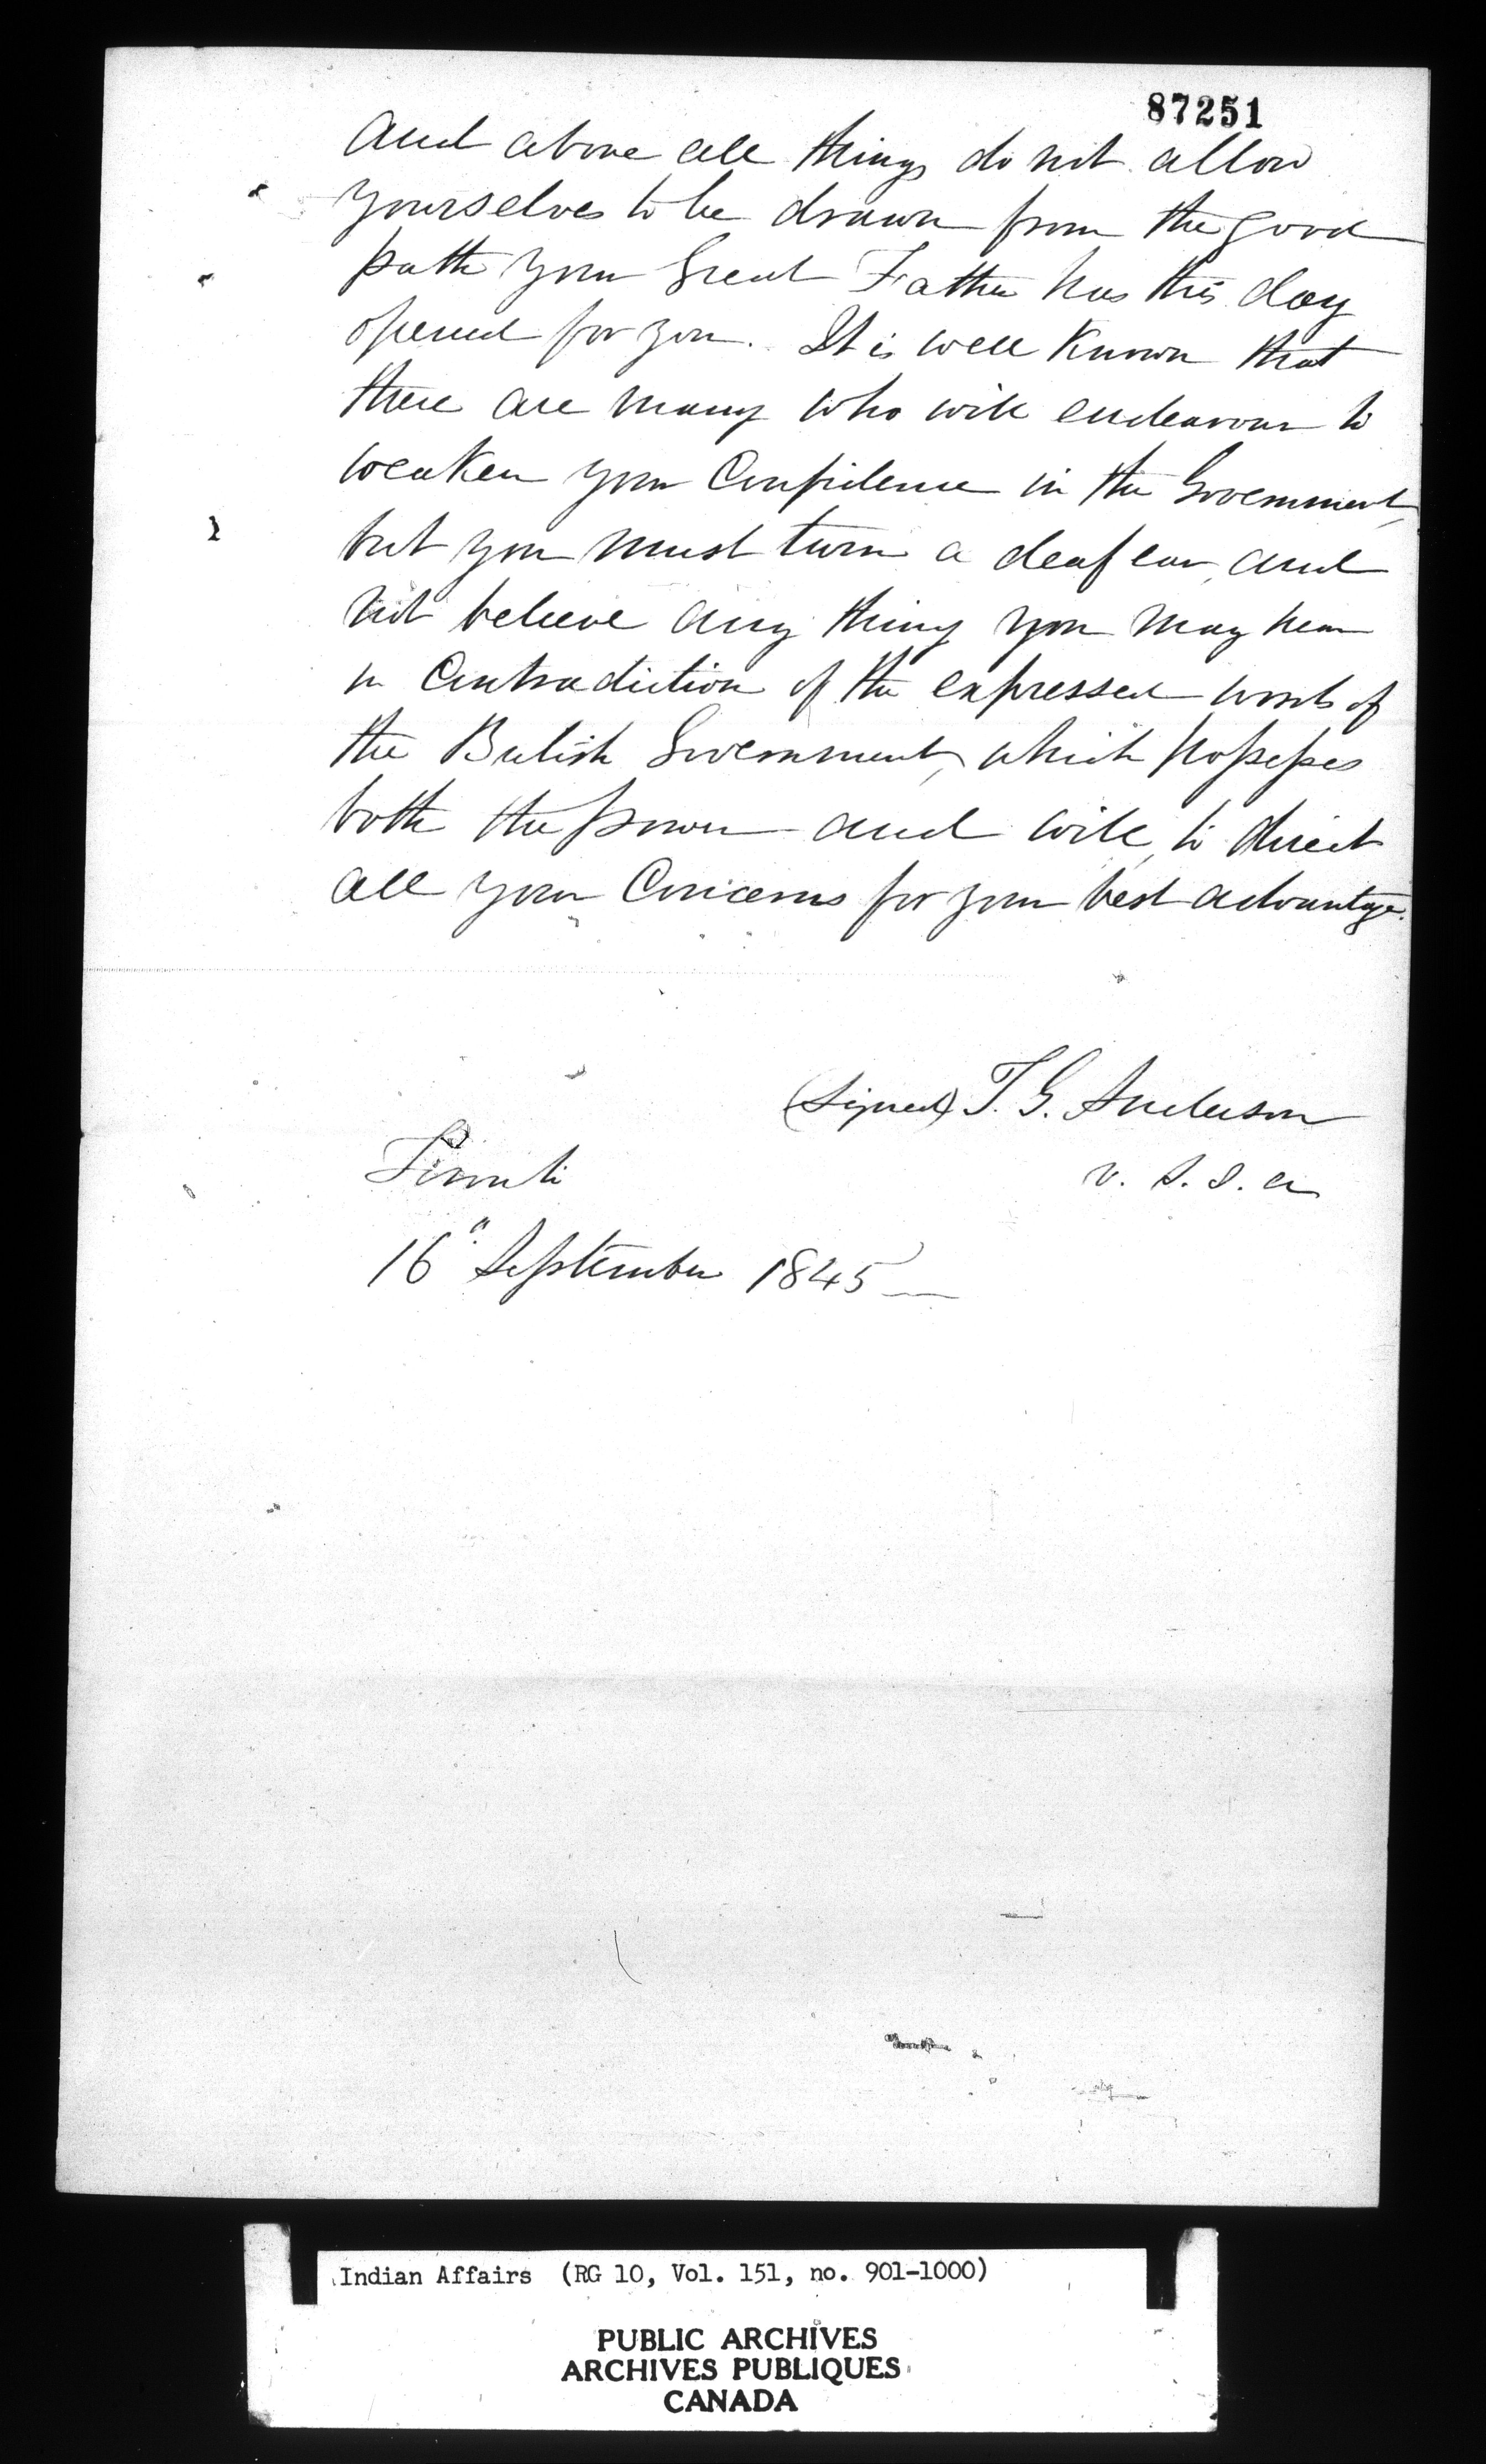 87251
And above all things do not allow
yourselves to be drawn from the good
path your Great Father has this day
opened for you. It is well Known that
there are many who will endeavour to
weaken your Confidence in the Government,
but you must turn a deaf ear, and
not believe any thing you may hear
in Contradiction of the expressed words of
the British Government, which possesses
both the power and will, to direct
all your Concerns for your best advantage.
(Signed) T. G. Anderson
V. S. I. A
Toronto
16" September 1845
Indian Affairs (RG 10, Vol. 151, no. 901-1000)
PUBLIC ARCHIVES
ARCHIVES PUBLIQUES
CANADA